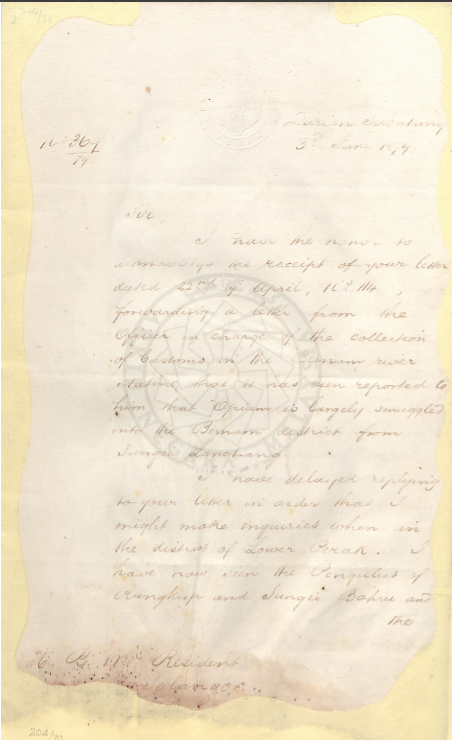 No 369/79
Durian Sabatang
3rd June 1879
Sir,
I have the honor to
acknowledge the receipt of your letter
dated 22nd of April, No. 114,
forwarding a letter from the
Officer in charge of the collection
of Customs in the Bernam river
stating that it has been reported to
him that Opium is largely smuggled
into the Bernam district from
Sungei
I have delayed replying
to your letter in order that I
might make inquiries when in
the district of Lower Perak. I
have now seen the Pengulus of
Rungkup and Sungei and
the
H. B. M's Resident
Salangor
204/79